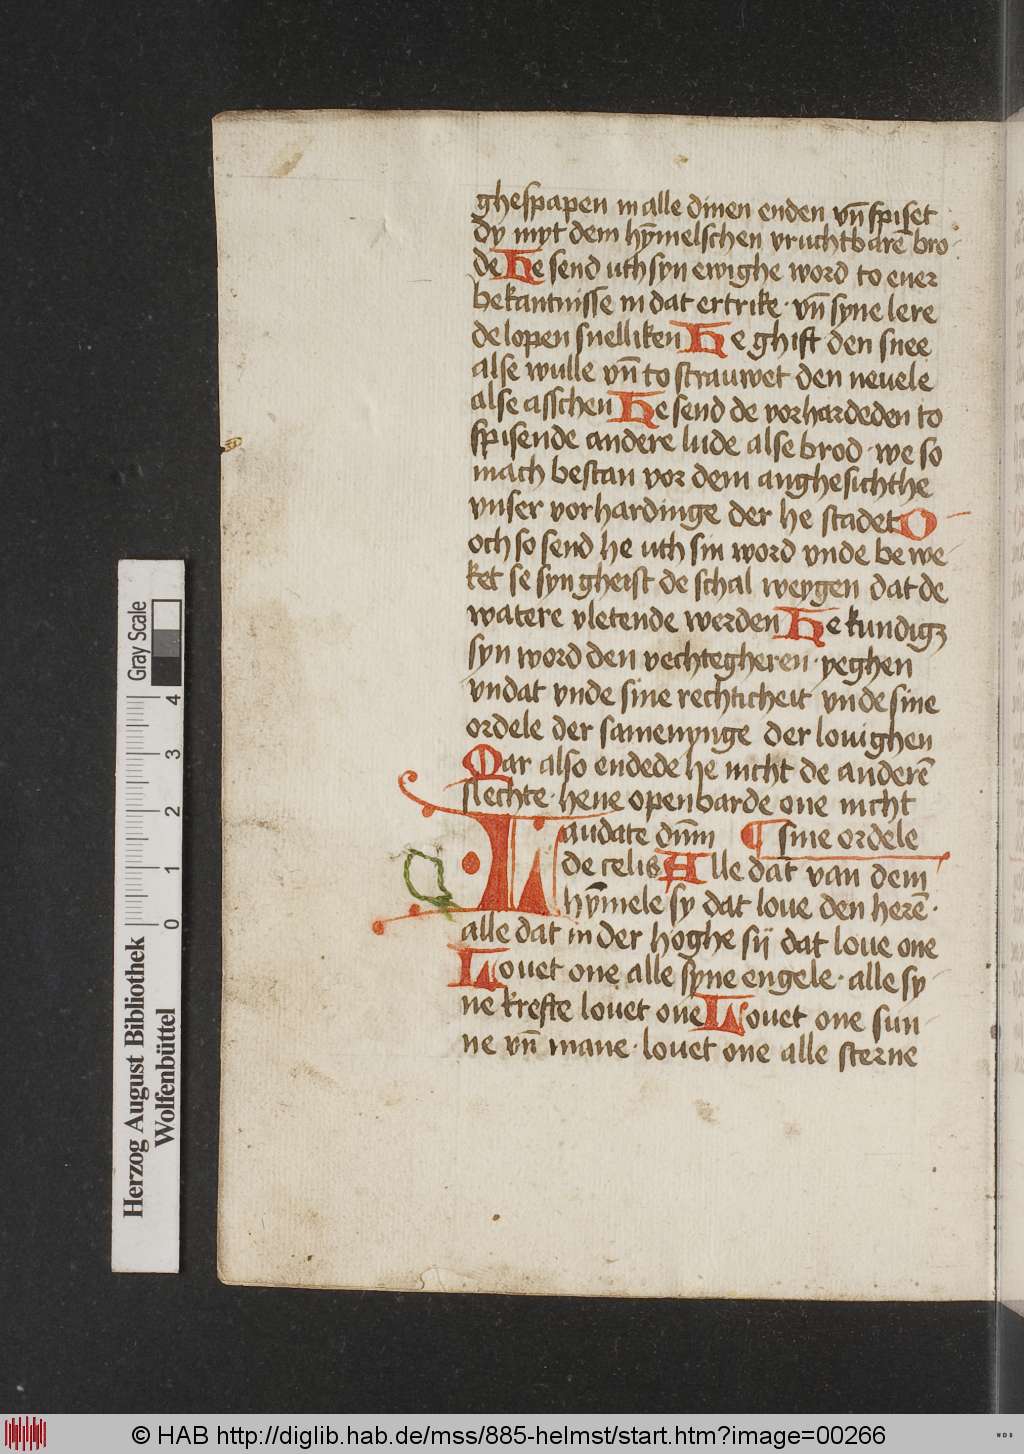 ghespapen in alle dinen enden vn̄ spiset
dy myt dem hȳmelschen vruchtbarē bro-
de He send uth syn ewighe word to ener
bekantnisse in dat ertrike · vn̄ syne lere
de lopen snelliken He ghift den snee
alse wulle vn̄ to strauwet den nevele
alse asschen He send de vorhardeden to
spisende andere lude alse brod · we so
mach bestan vor dem anghesichthe
vnser vorhardinge der he stadet O
och so send he uth sin word vnde be we-
ket se syn gheist de schal weygen dat de
watere vletende werden He kundigꝫ
syn word den vechtegheren · yeghen
vndat vnde sine rechticheit vnde sine
ordele der samenynge der lovighen
War also endede he nicht de anderē
slechte · he ne openbarde one nicht
Laudate dn̄m ¶ sine ordele
de celis Alle dat van dem
hȳmele sy dat love den herē ·
alle dat in der hoghe sij dat love one
Lovet one alle syne engele · alle sy-
ne krefte lovet one Lovet one sun-
ne vn̄ mane · lovet one alle sterne
Gray Scale
0 1 2 3 4
Herzog August Bibliothek
Wolfenbüttel
© HAB http://diglib.hab.de/mss/885-helmst/start.htm?image=00266